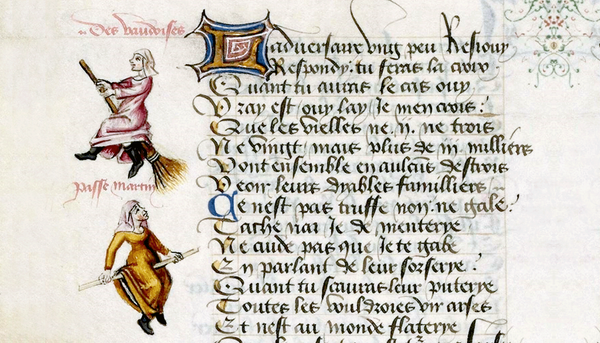 Des vaudoises
Laduersaire vng peu Resiouy
Respondy: tu feras la croix
Quant tu auras le cas ouy
Vray est ouy lay Je men crois:
Que les vielles ne .ij. ne trois
Ne vingt mais plus de .iij. milliers
Vont ensemble en aulcuns destrois
Veoir leurs dyables familliers
passe martin
Ce nest pas truffe non ne gale:
Tache nai Je de menterye
Ne cuide pas que Je te gabe
En parlant de leur sorserye:
Quant tu scauras leur puterye
Toutes les vouldroies vir arses
Et nest au monde flaterye